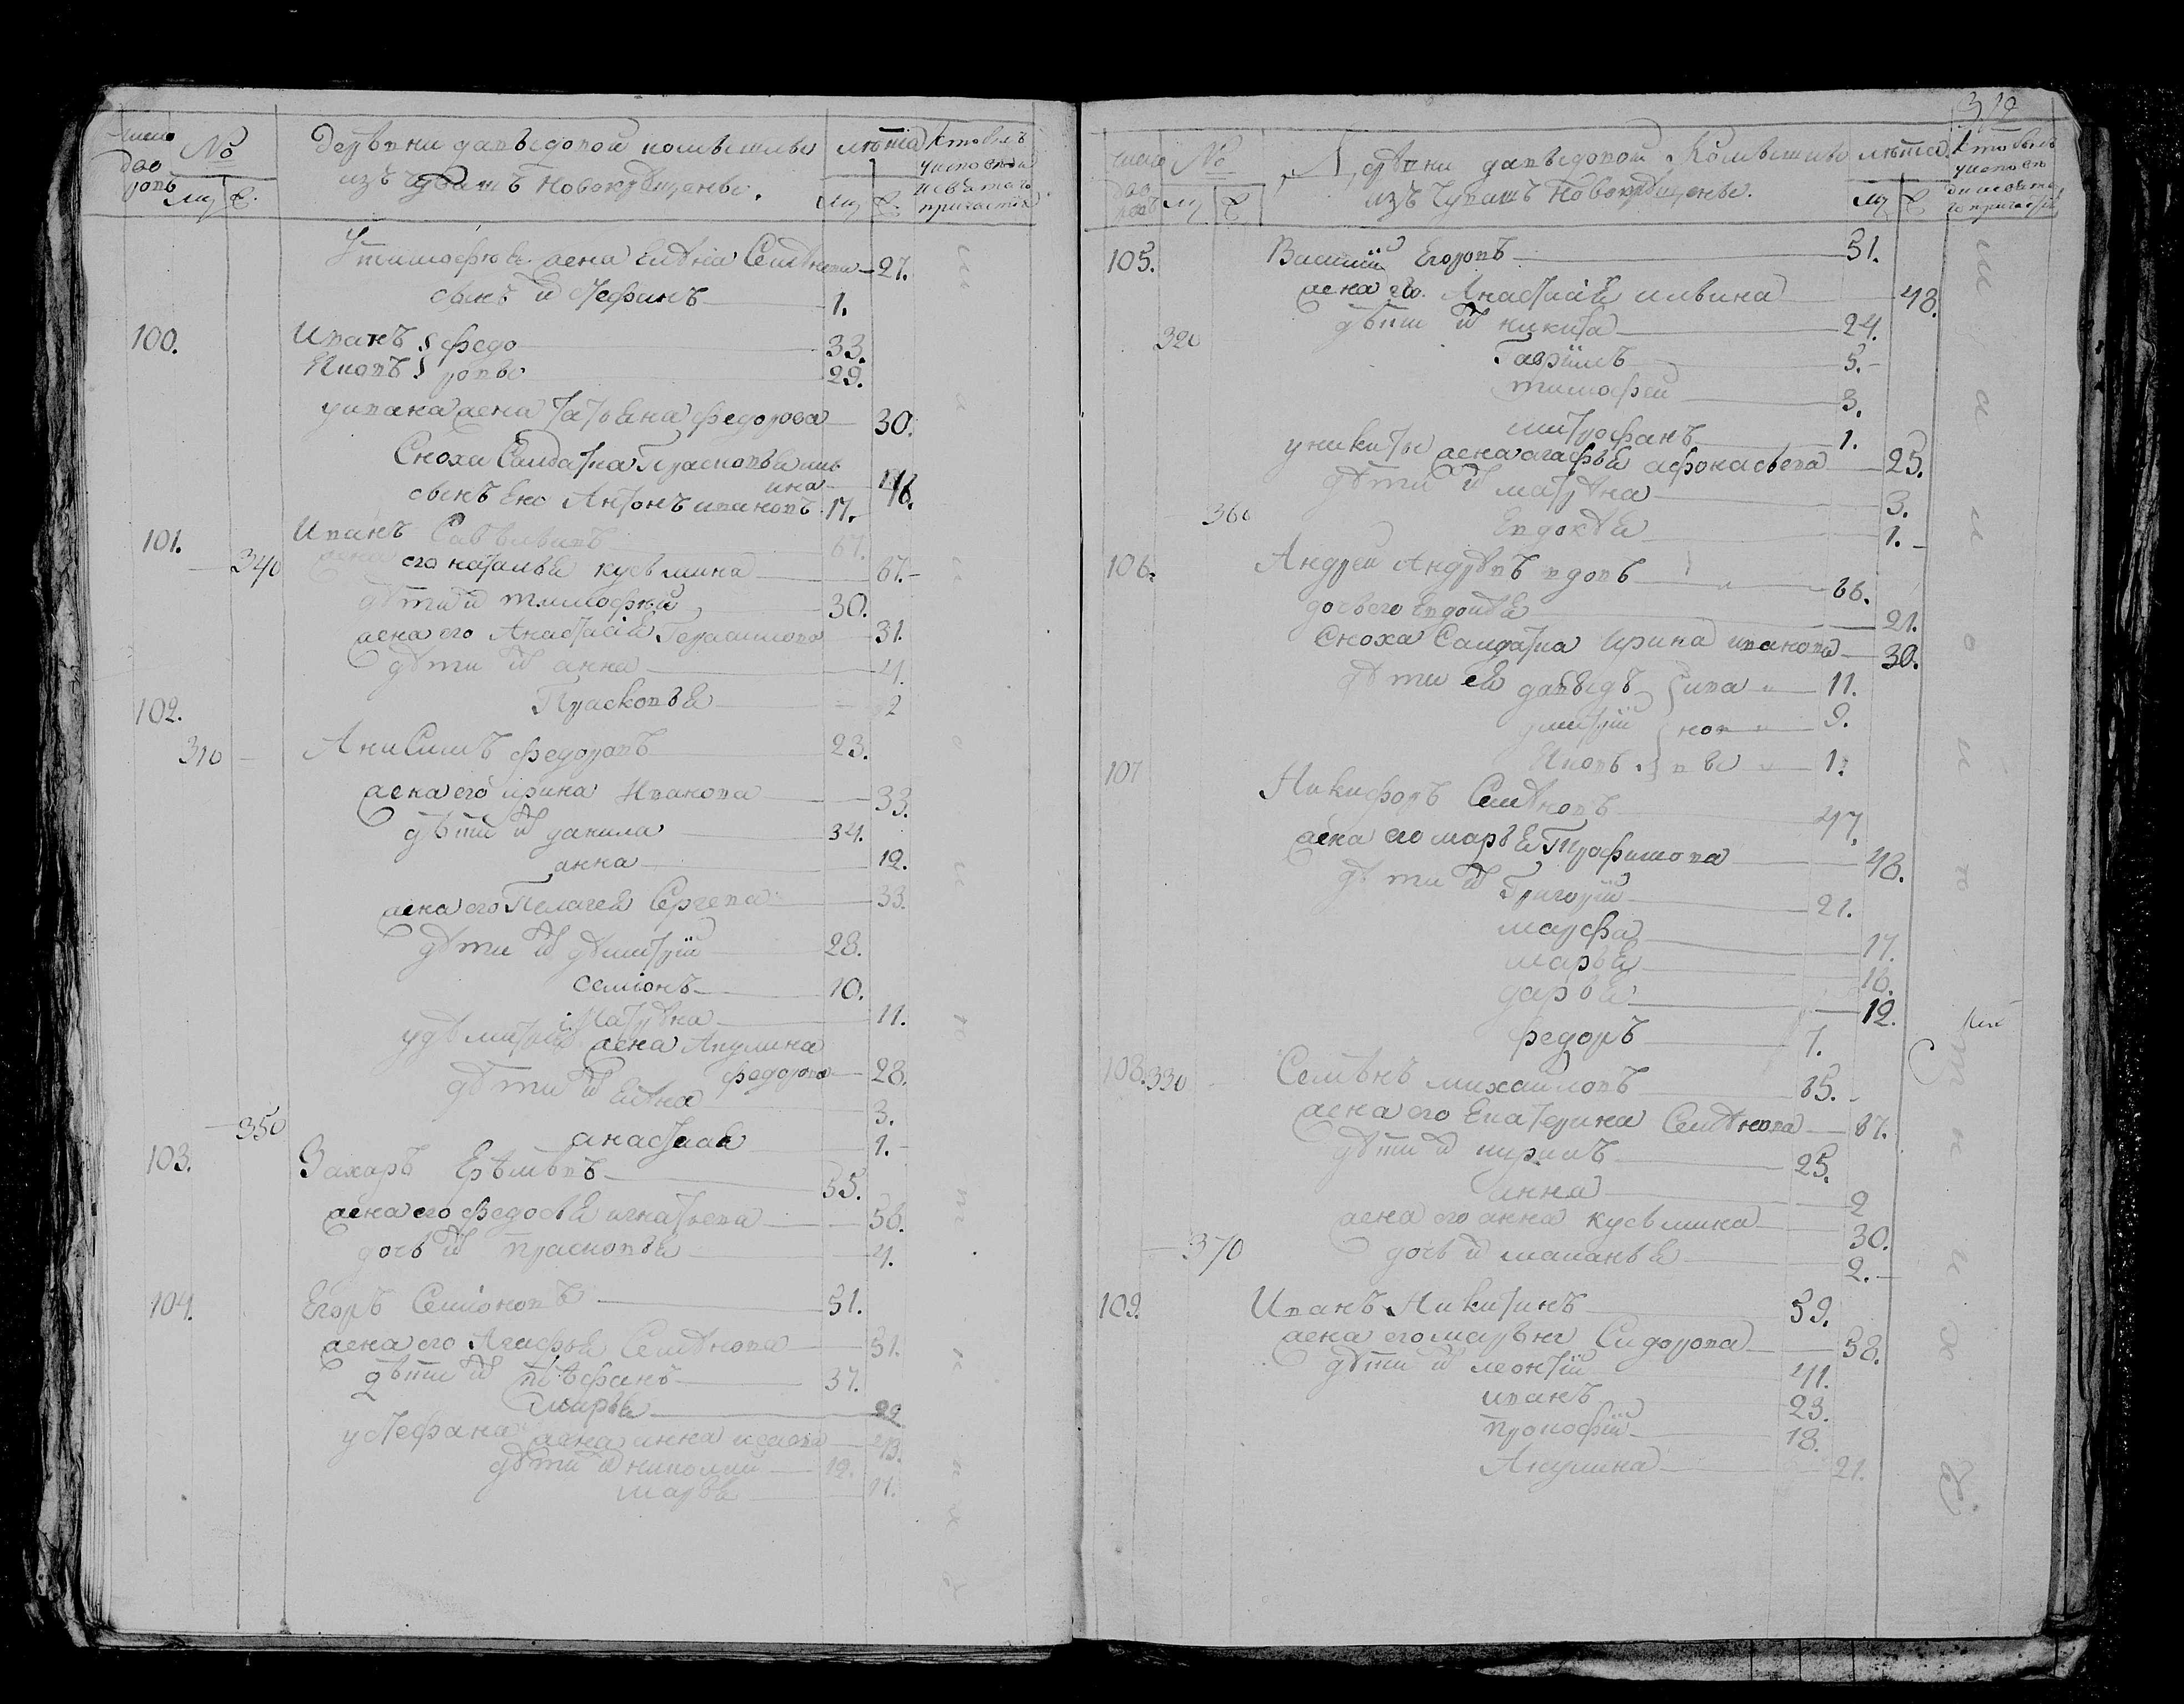 число дво ровъ № му ж.
деревни давыдовой колывшево
изъ чувашъ новокрещенъе.
лѣта му ж.
кто былъ
у исповеди
и святаго
причастия
У тимофѣя жена Елена Семенова 27.
сынъ их стефанъ 1.
100. Иванъ федо 33.
Яковъ ровы 29.
у ивана жена татьяна федорова 30.
Сноха Салдатка Прасковья
сынъ Ево Антонъ ивановъ 17.
101. Иванъ Савельевъ 67.
340 жена его наталья кусьмина 67.
дѣти их тимофѣй 30.
жена его Анастасія Герасимова 31.
дѣти их анна 4.
Прасковья 2
102.
310 Анисимъ федоровъ 23.
жена его ирина Иванова 33.
дѣти их данила 34.
анна 12.
жена его Пелагея Сергева 33.
дѣти их дмитрій 28.
семіонъ 10.
Матрена 11.
у дмитрия жена Акулина
федорова 28.
дѣти их Елена 3.
350 анастасія 1.
103. Захаръ Ерѣмѣвъ 55.
жена его федосья игнатьева 56.
дочь их прасковья 4.
104. Егоръ Семіоновъ 51.
жена его Агафья Семенова 51.
дѣти их стефанъ 37.
марья 22
у стефана жена анна
дѣти их николай 12.
марья 11.
312
число дво ровъ № му ж.
Деревни давыдовой Колывшево
изъ чувашъ новокрещенъе.
лѣта му ж.
кто былъ
у исповеди
и святаго
причастия
105. Василій Егоровъ 51.
жена его Анастасія ильина 48.
320 дѣти их никита 24.
Гаврилъ 5.
тимофеи 3.
митрофанъ 1.
у никиты жена агафья афонасьева 25.
дѣти их матрена 3.
360 Евдокея 1.
106. Андреи Андревъ вдовъ 66.
дочь его Евдокея 21.
Сноха Салдатка Ирина иванова 30.
дѣти ея давыдъ ива 11.
дмитрій нов 9.
Яковъ вы 1.
107 Никифоръ Семеновъ 47.
жена его марья Трофимова 48.
дѣти их Григорій 21.
марфа 17.
марья 16.
дарья 12.
федоръ 7.
108. 330 Семѣнъ михаиловъ 65.
жена его Екатерина Семенова 67.
дѣти их кирилъ 25.
анна 2
жена его анна кусьмина 30.
370 дочь их маланья 2.
109. Иванъ Никитинъ 59.
жена его Сидорова 58.
дѣти их леонтій 41.
иванъ 23.
прокофій 18.
Акулина 21.